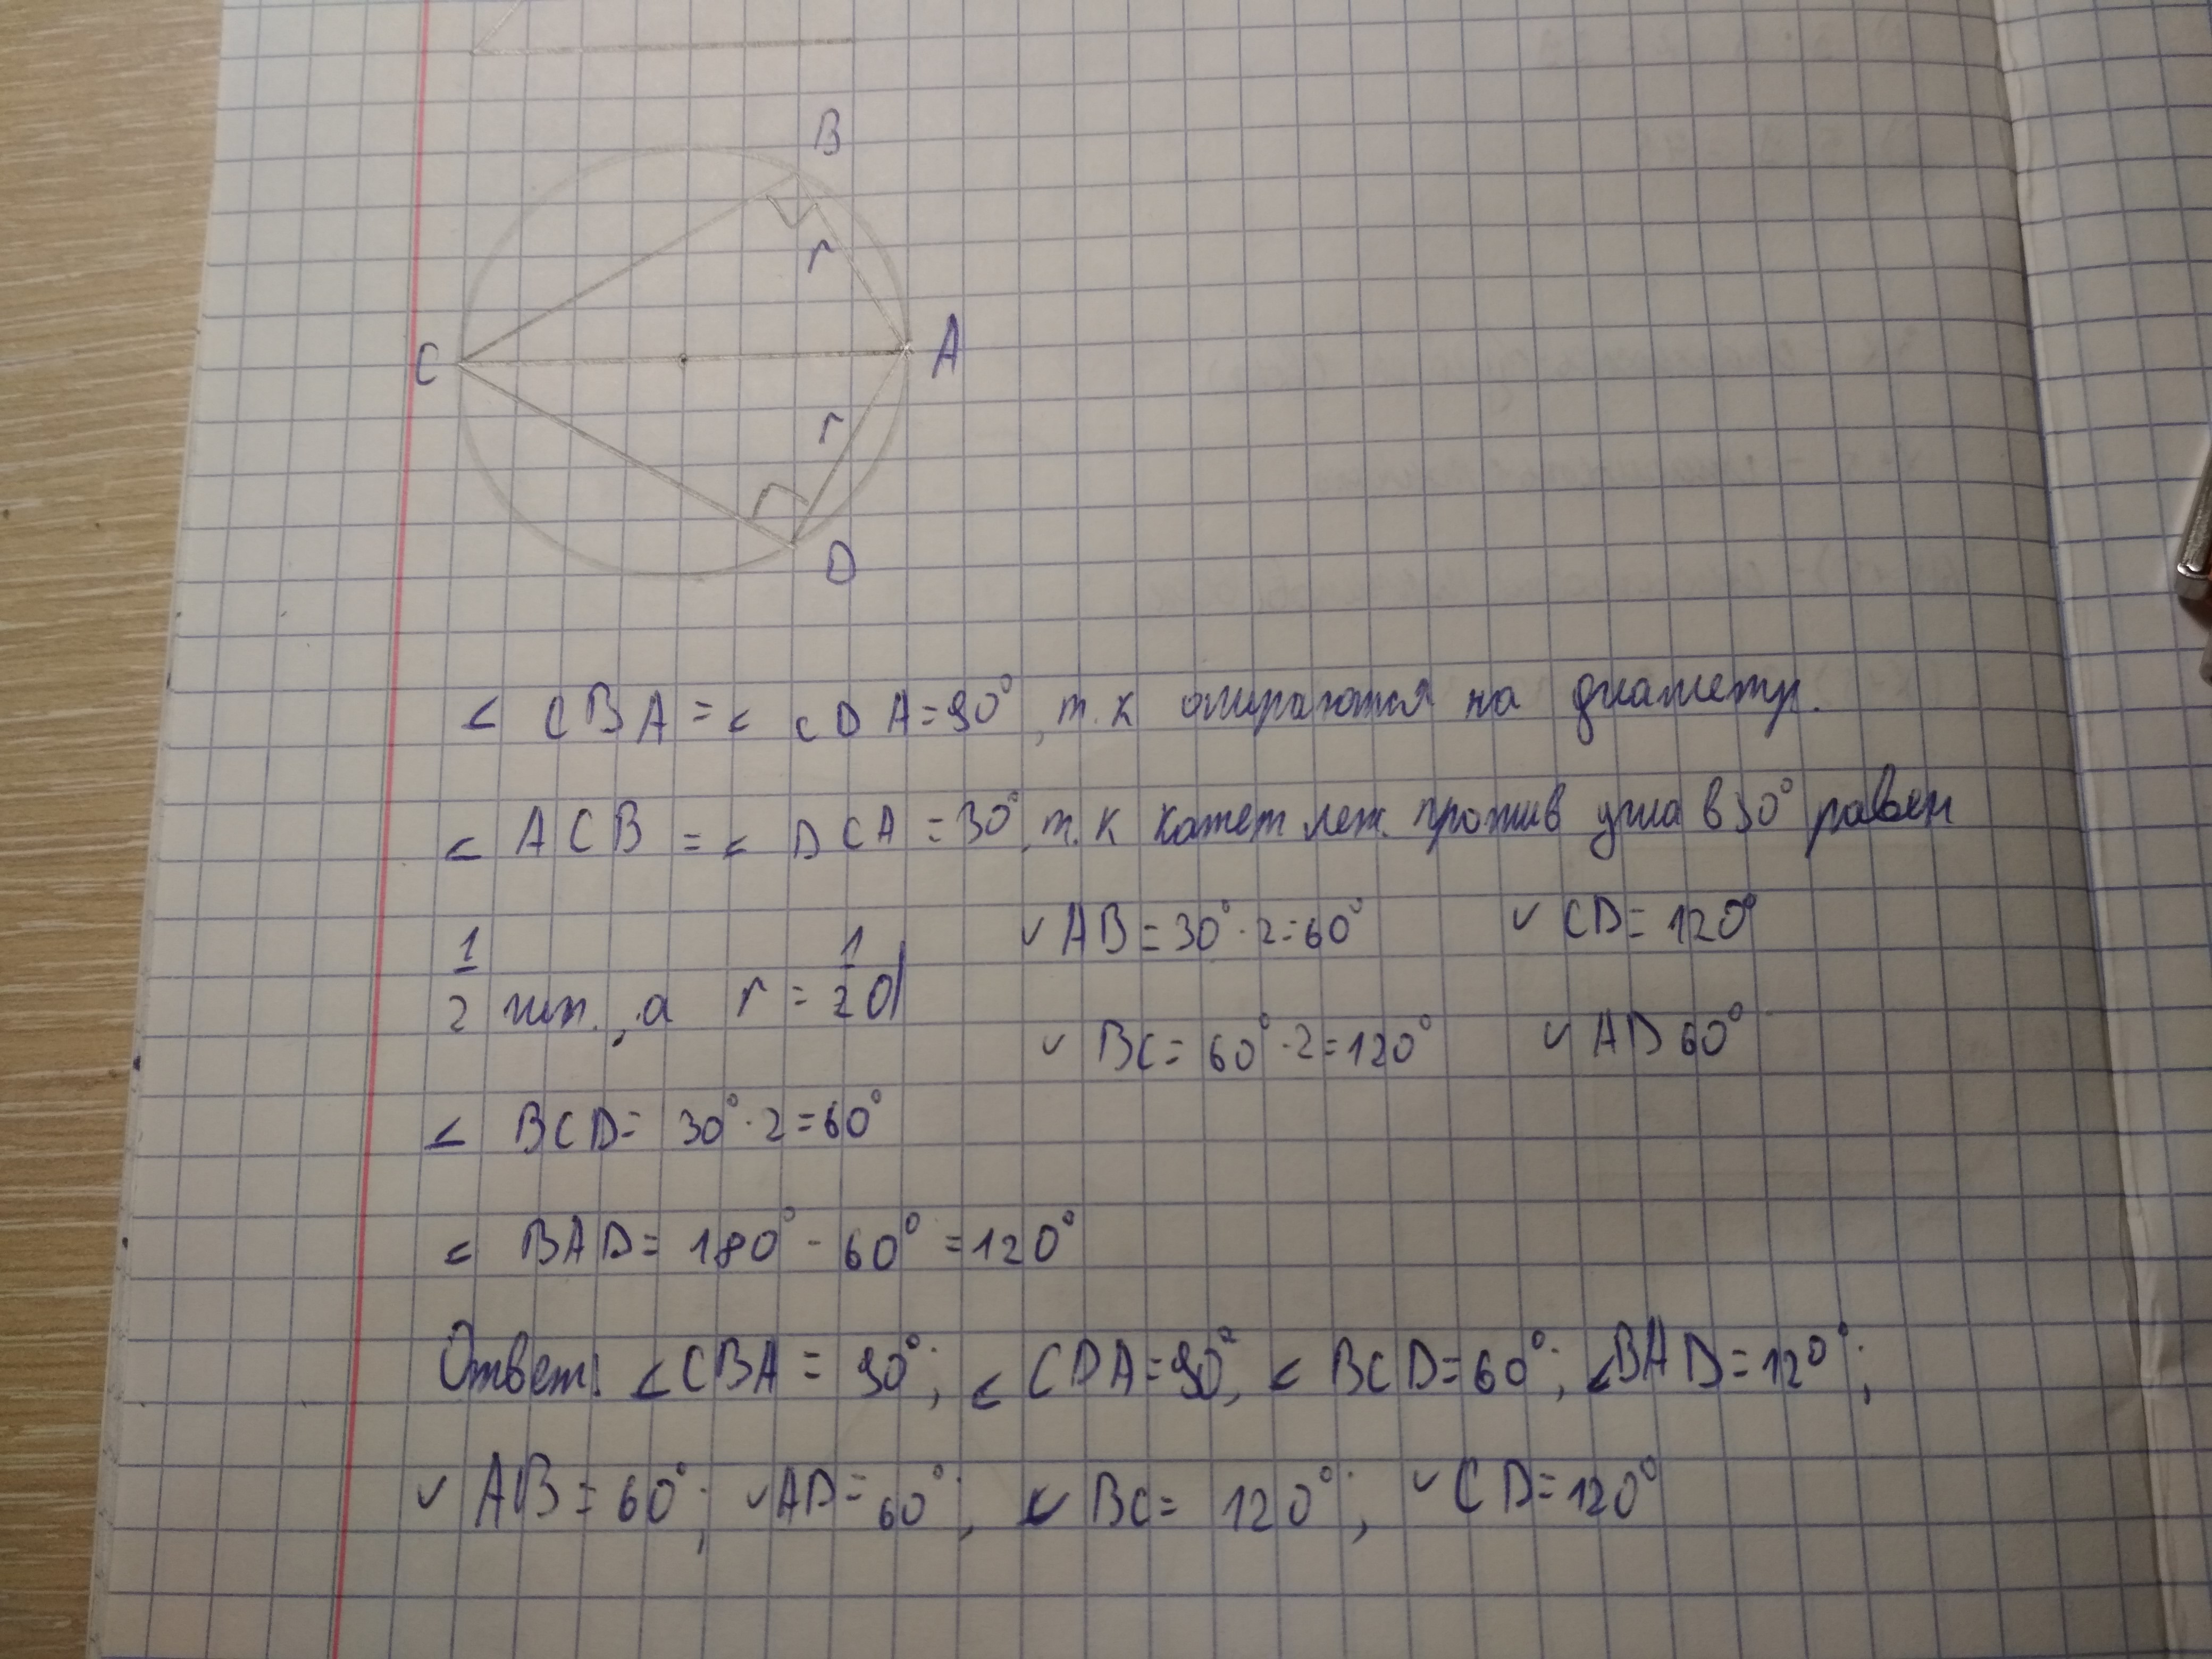 B
r
C
A
r
D
∠ CBA = ∠ CDA = 90°, т.к опираются на диаметр.
∠ ACB = ∠ DCA = 30°, т.к катет леж. против угла в 30° равен
1/2 гип., а r = 1/2 d
◡ AB = 30° · 2 = 60° ◡ CD = 120°
◡ BC = 60° · 2 = 120° ◡ AD 60°
∠ BCD = 30° · 2 = 60°
∠ BAD = 180° - 60° = 120°
Ответ: ∠ CBA = 90°; ∠ CDA = 90°, ∠ BCD = 60°; ∠ BAD = 120°;
◡ AB = 60°; ◡ AD = 60°; ◡ BC = 120°; ◡ CD = 120°